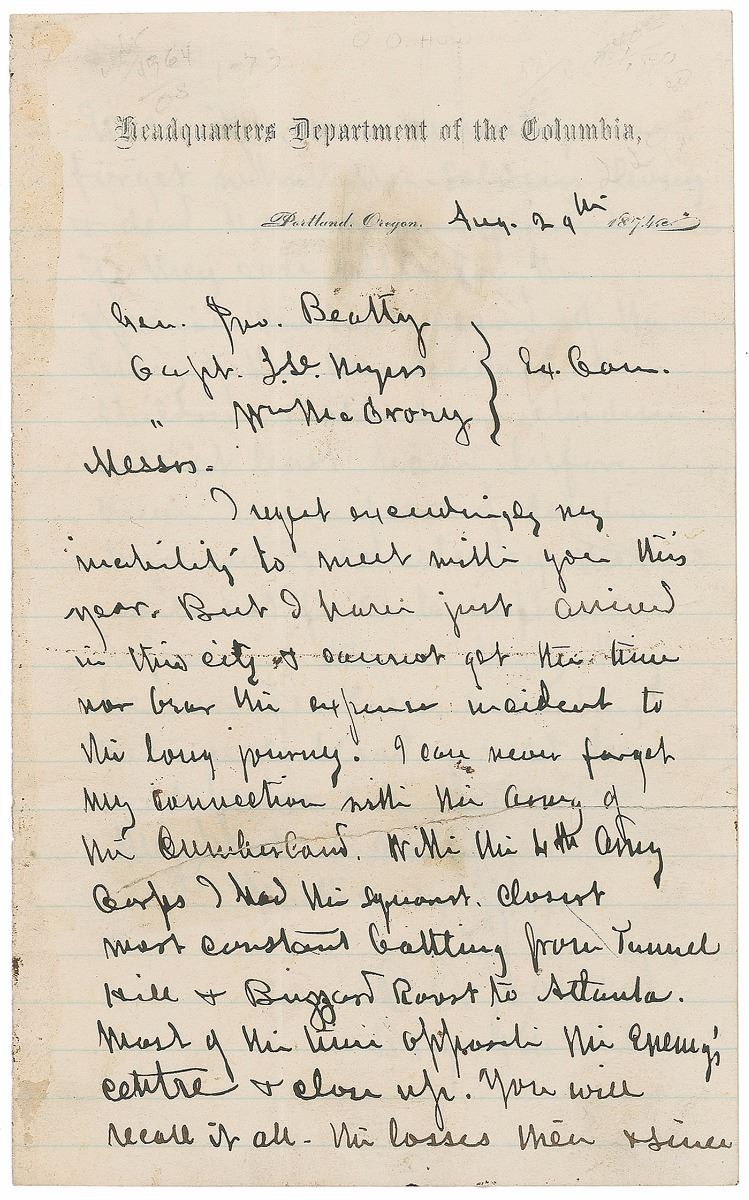 O. O. How
1964
1873
Headquarters Department of the Columbia,
Portland, Oregon. Aug. 29th 1874.
Gen. Jno. Beatty
Capt. Myers } Ex. Com.
" Wm McCrory
Messrs.
I regret exceedingly my
inability to meet with you this
year. But I have just arrived
in this city & cannot get the time
nor bear the expense incident to
the long journey. I can never forget
my connection with the Army of
the Cumberland. With the 4th Army
Corps I had the squarest, closest
most constant battling from Tunnel
Hill & Buzzard Roost to Atlanta.
Most of the time opposite the Enemy's
centre & close up. You will
recall it all - the losses then & since